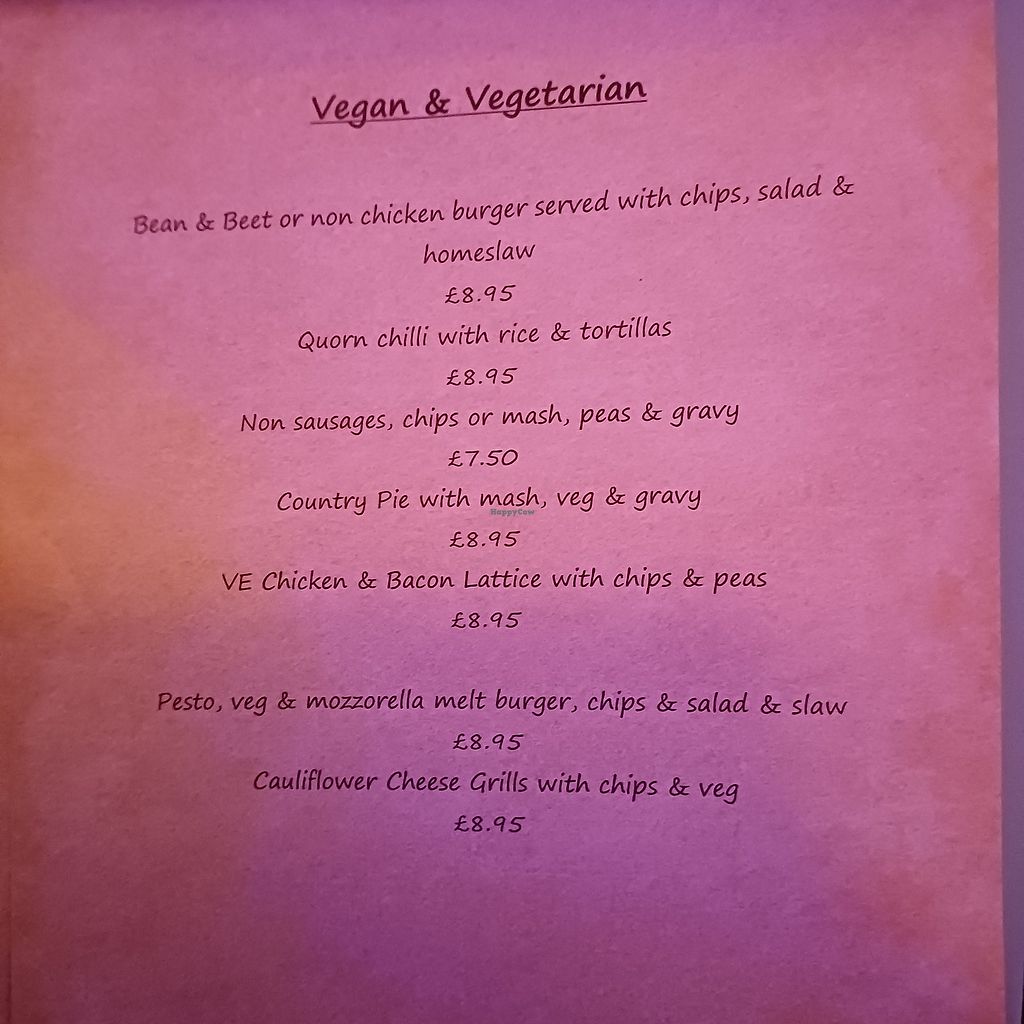 Vegan & Vegetarian
Bean & Beet or non chicken burger served with chips, salad &
homeslaw
£8.95
Quorn chilli with rice & tortillas
£8.95
Non sausages, chips or mash, peas & gravy
£7.50
Country Pie with mash, veg & gravy
HappyCow
£8.95
VE Chicken & Bacon Lattice with chips & peas
£8.95
Pesto, veg & mozzorella melt burger, chips & salad & slaw
£8.95
Cauliflower Cheese Grills with chips & veg
£8.95